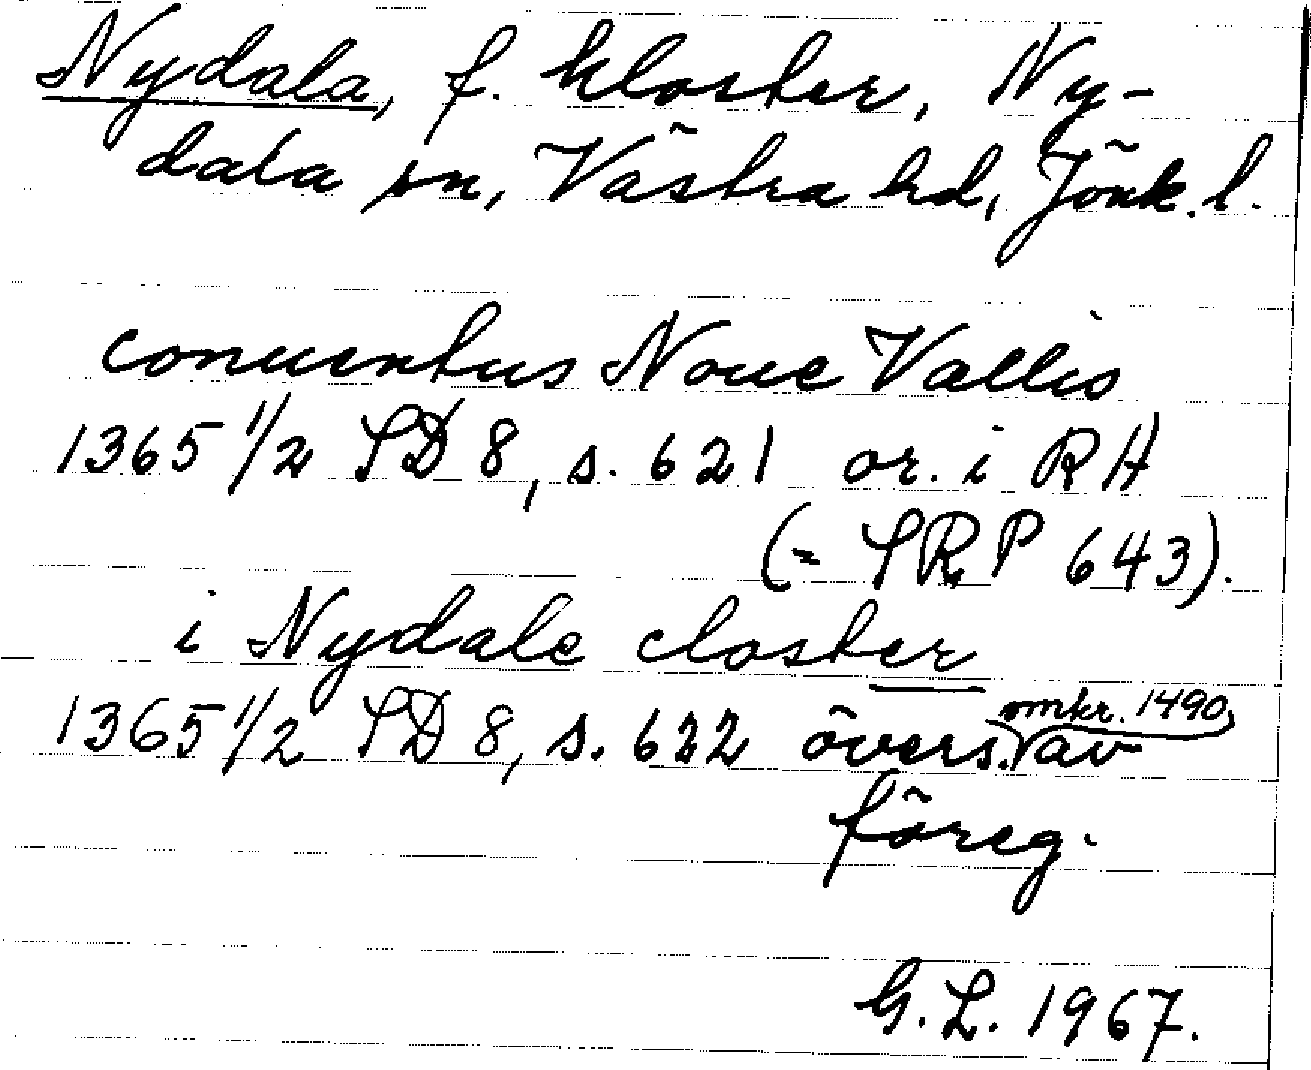 Nydala, f. kloster, Ny-
dala sn, Västra hd, Jönk. l.
conuentus Noue Vallis
1365 1/2 SD 8, s. 621 or. i RA
(= SRP 643).
i Nydale closter
1365 1/2 SD 8, s. 622 övers. omkr. 1490 av
föreg.
G. L. 1967.